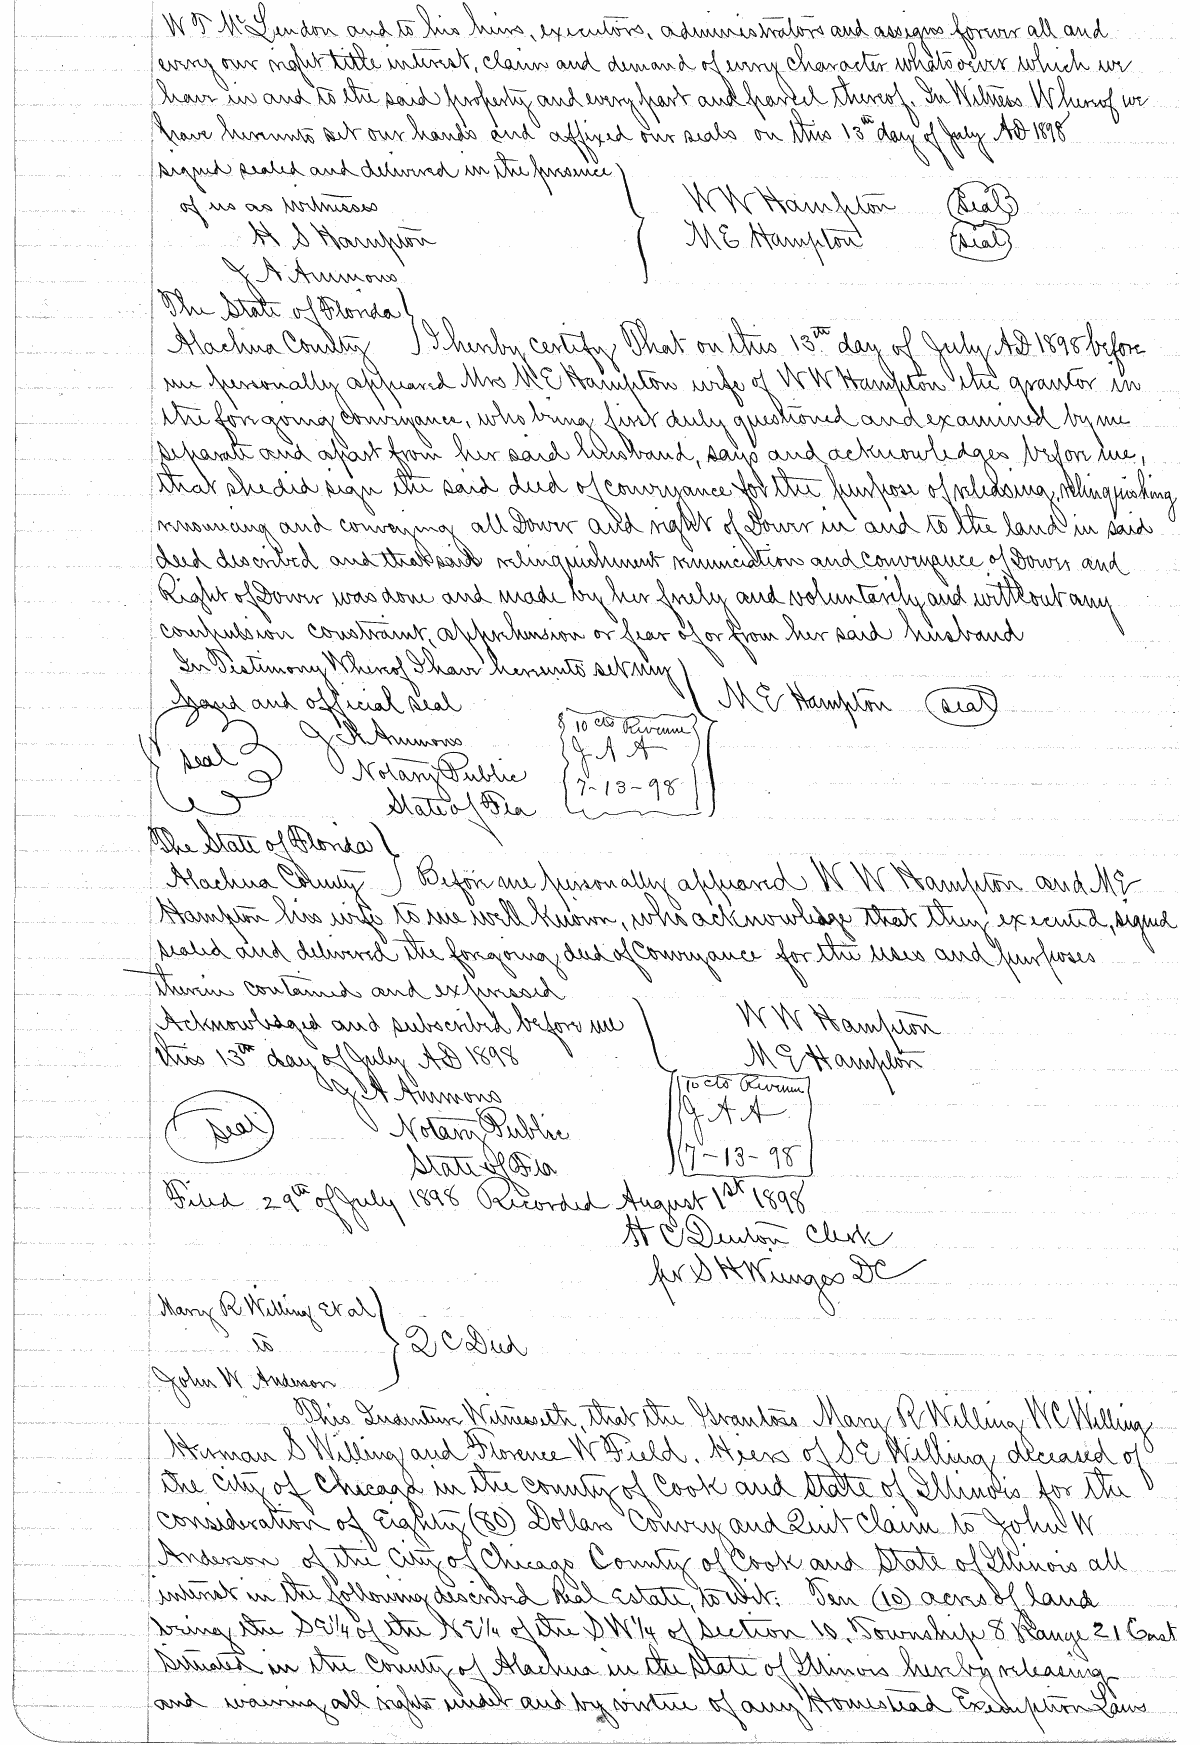 W T McLendon and to his heirs, executors, administrators and assigns forever all and
every our right title interest, claim and demand of every character whatsoever which we
have in and to the said property and every part and parcel thereof. In Witness Whereof we
have hereunto set our hands and affixed our seals on this 13th day of July AD 1898
signed sealed and delivered in the presence
of us as witnesses
W W Hampton (Seal)
H S Hampton
M E Hampton (Seal)
J A Ammons
The State of Florida
Alachua County I hereby certify That on this 13th day of July AD 1898 before
me personally appeared Mrs M E Hampton wife of W W Hampton the grantor in
the foregoing conveyance, who being first duly questioned and examined by me
separate and apart from her said husband, says and acknowledges before me,
that she did sign the said deed of conveyance for the purpose of releasing, relinquishing
renouncing and conveying all Dower and right of Dower in and to the land in said
deed described and that said relinquishment renunciation and conveyance of Dower and
Right of Dower was done and made by her freely and voluntarily and without any
compulsion constraint, apprehension or fear of or from her said husband
In Testimony Whereof I have hereunto set my
hand and official seal
M E Hampton (seal)
seal
J A Ammons
Notary Public
State of Fla
10 cts Revenue
J A A
7-13-98
The State of Florida
Alachua County Before me personally appeared W W Hampton and M E
Hampton his wife to me well known, who acknowledge that they executed, signed
sealed and delivered the foregoing deed of Conveyance for the uses and purposes
therein contained and expressed
Acknowledged and subscribed before me
this 13th day of July AD 1898
W W Hampton
M E Hampton
J A Ammons
Notary Public
State of Fla
Seal
10 cts Revenue
J A A
7-13-98
Filed 29th of July 1898 Recorded August 1st 1898
H C Denton Clerk
per S H Wienges DC
Mary R Willing Et al
to
John W Anderson
Q C Deed
This Indenture Witnesseth, that the Grantors Mary R Willing W C Willing
Herman S Willing and Florence W Field. Heirs of S E Willing deceased of
the City of Chicago in the county of Cook and State of Illinois for the
consideration of Eighty (80) Dollars Convey and Quit Claim to John W
Anderson of the City of Chicago County of Cook and State of Illinois all
interest in the following described Real Estate, to wit: Ten (10) acres of land
being the SE¼ of the NE¼ of the SW¼ of Section 10. Township 8 Range 21 East
Situated in the County of Alachua in the State of Illinois hereby releasing
and waiving all rights under and by virtue of any Homestead Exemption Laws